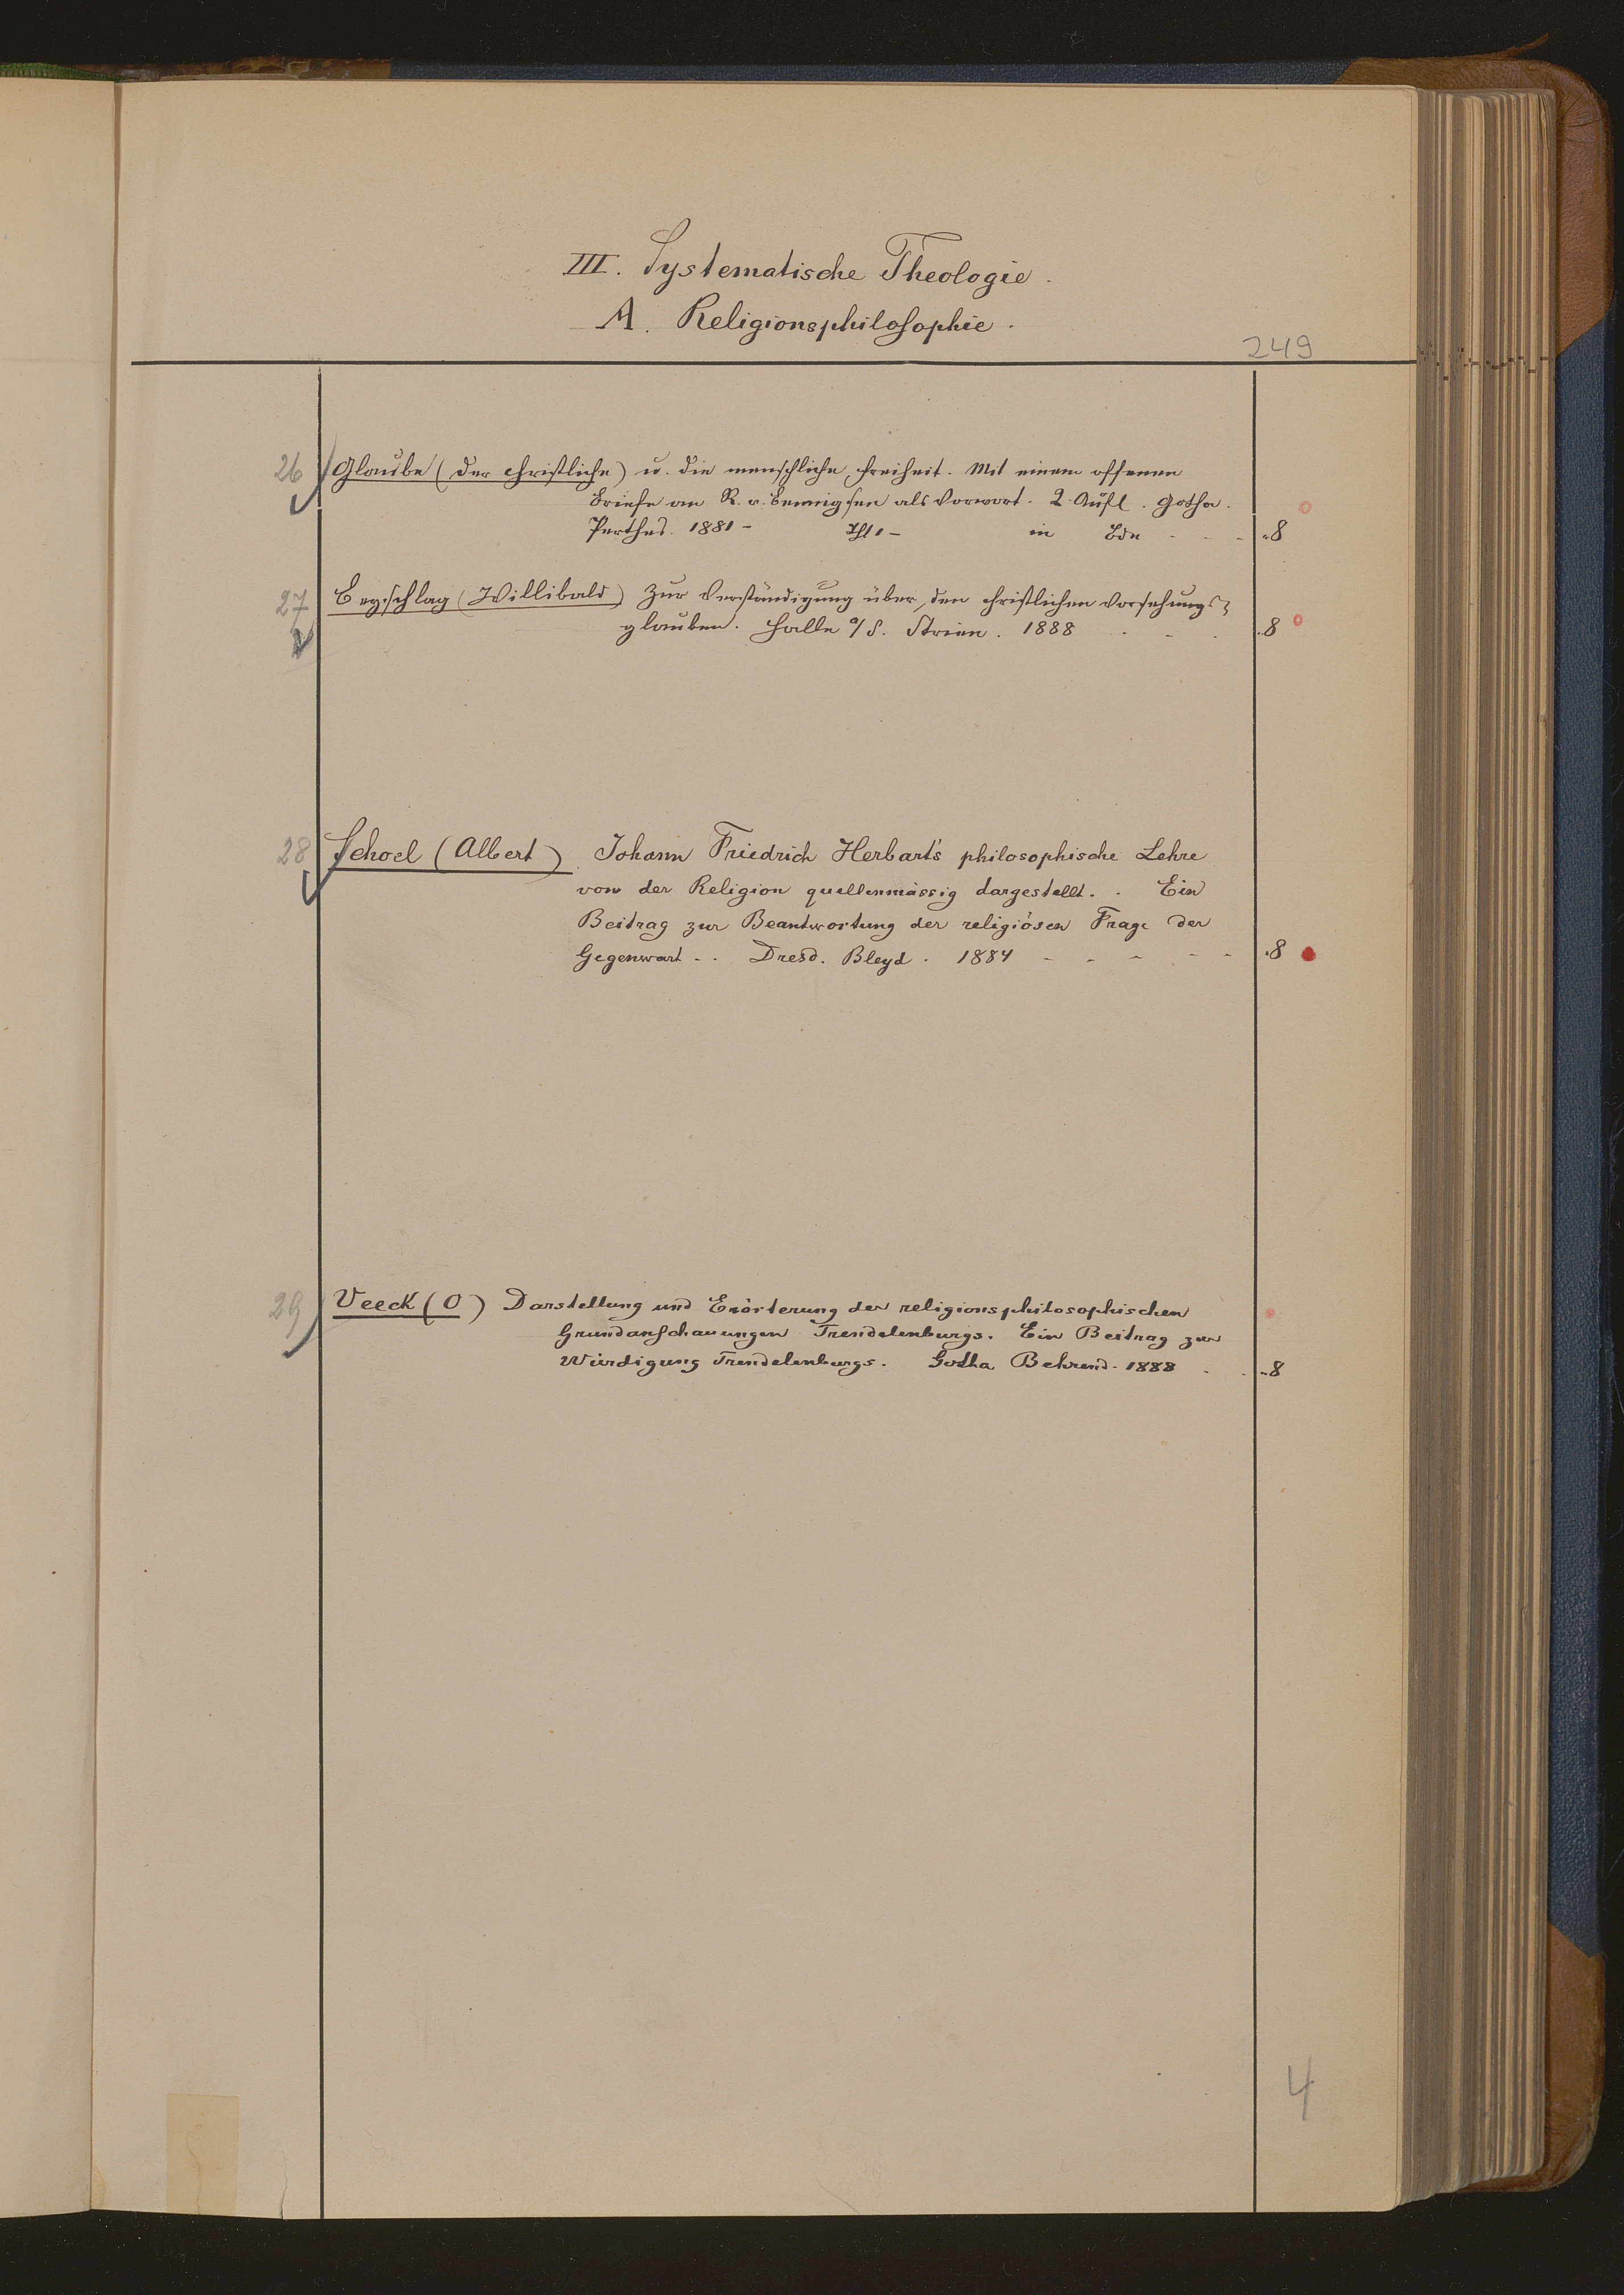 III. Systematische Theologie.
A. Religionsphilosophie.
249
26 Glaube (der christliche) u. die menschliche Freiheit. Mit einem offenen
Briefe an R. v. Bennigsen als Vorwort. 2. Aufl. Gotha.
Perthes. 1881 - Thl 1 - in Bde - - - 8
27 Beyschlag (Willibald) Zur Verständigung über den christlichen Vorsehungs=
glauben. Halle a/S. Strien. 1888 . - . 8
28 Schoel (Albert) Johann Friedrich Herbart's philosophische Lehre
von der Religion quellenmässig dargestellt. . Ein
Beitrag zur Beantwortung der religiösen Frage der
Gegenwart - . Dresd. Bleyl . 1884 - - - - - 8
29 Veeck (O) Darstellung und Erörterung der religionsphilosophischen
Grundanschauungen Trendelenburgs. Ein Beitrag zur
Würdigung Trendelenburgs. Gotha Behrend. 1888 . . 8
4